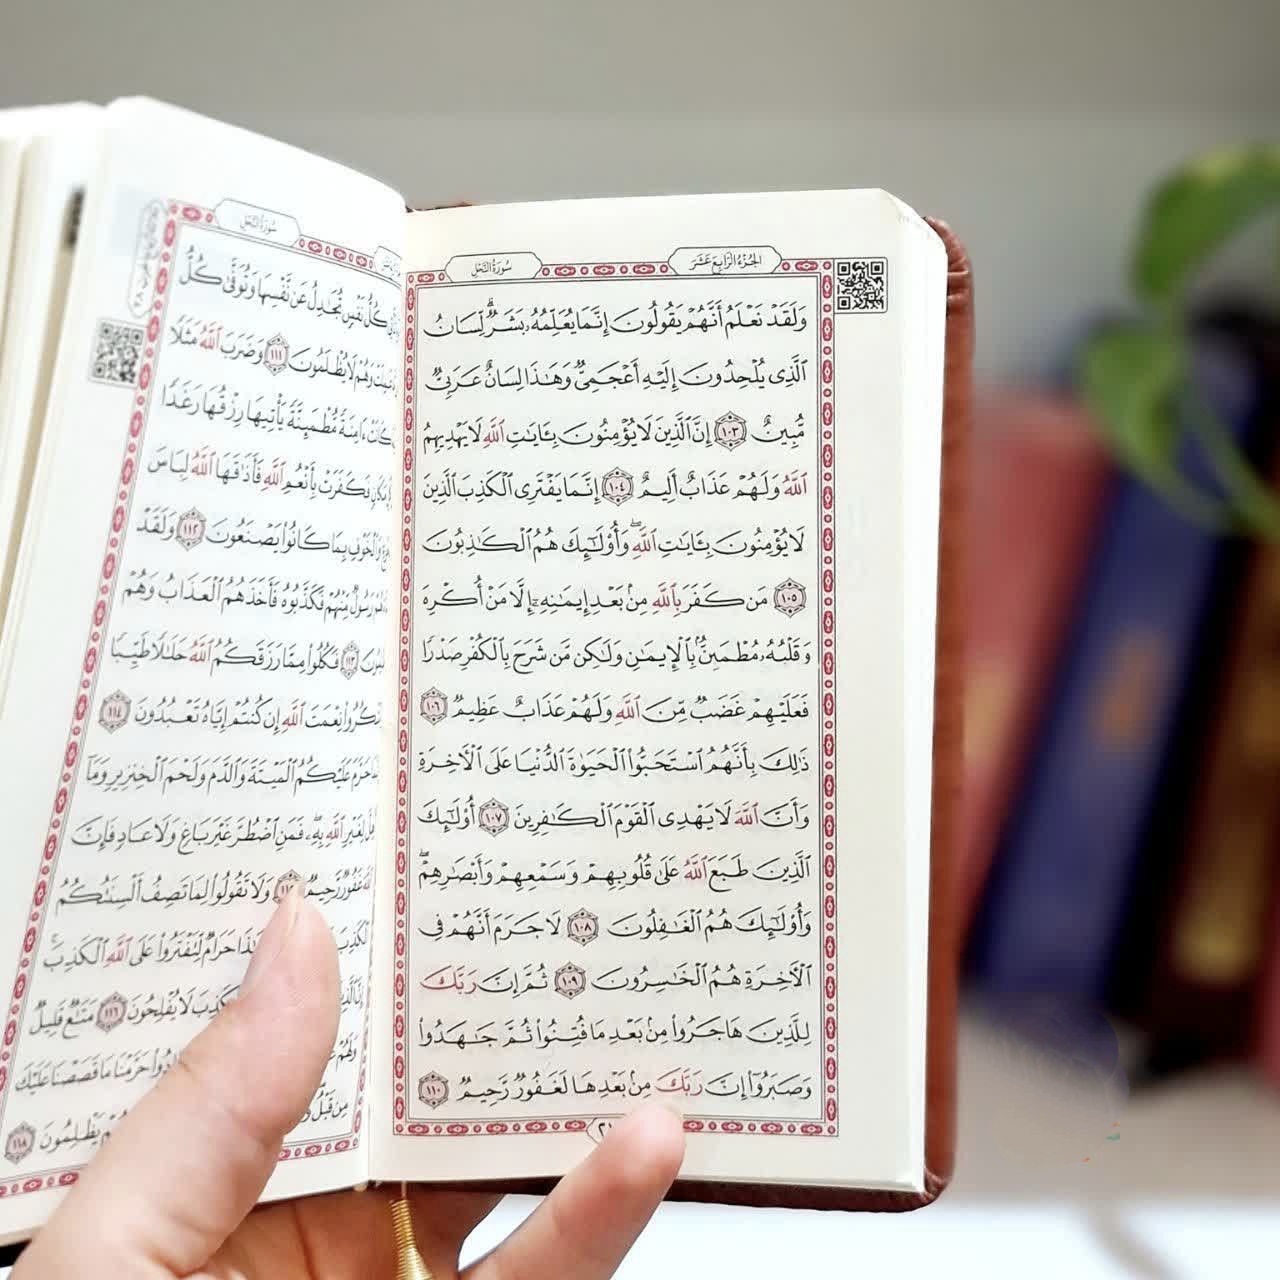 الجزء الرابع عشر
سورة النحل
وَلَقَدْ نَعْلَمُ أَنَّهُمْ يَقُولُونَ إِنَّمَا يُعَلِّمُهُۥ بَشَرٌۗ لِّسَانُ
ٱلَّذِى يُلْحِدُونَ إِلَيْهِ أَعْجَمِىٌّ وَهَٰذَا لِسَانٌ عَرَبِىٌّ
مُّبِينٌ ١٠٣ إِنَّ ٱلَّذِينَ لَا يُؤْمِنُونَ بِـَٔايَٰتِ ٱللَّهِ لَا يَهْدِيهِمُ
ٱللَّهُ وَلَهُمْ عَذَابٌ أَلِيمٌ ١٠٤ إِنَّمَا يَفْتَرِى ٱلْكَذِبَ ٱلَّذِينَ
لَا يُؤْمِنُونَ بِـَٔايَٰتِ ٱللَّهِۖ وَأُو۟لَٰٓئِكَ هُمُ ٱلْكَٰذِبُونَ
١٠٥ مَن كَفَرَ بِٱللَّهِ مِنۢ بَعْدِ إِيمَٰنِهِۦٓ إِلَّا مَنْ أُكْرِهَ
وَقَلْبُهُۥ مُطْمَئِنٌّۢ بِٱلْإِيمَٰنِ وَلَٰكِن مَّن شَرَحَ بِٱلْكُفْرِ صَدْرًا
فَعَلَيْهِمْ غَضَبٌ مِّنَ ٱللَّهِ وَلَهُمْ عَذَابٌ عَظِيمٌ ١٠٦
ذَٰلِكَ بِأَنَّهُمُ ٱسْتَحَبُّوا۟ ٱلْحَيَوٰةَ ٱلدُّنْيَا عَلَى ٱلْءَاخِرَةِ
وَأَنَّ ٱللَّهَ لَا يَهْدِى ٱلْقَوْمَ ٱلْكَٰفِرِينَ ١٠٧ أُو۟لَٰٓئِكَ
ٱلَّذِينَ طَبَعَ ٱللَّهُ عَلَىٰ قُلُوبِهِمْ وَسَمْعِهِمْ وَأَبْصَٰرِهِمْۖ
وَأُو۟لَٰٓئِكَ هُمُ ٱلْغَٰفِلُونَ ١٠٨ لَا جَرَمَ أَنَّهُمْ فِى
ٱلْءَاخِرَةِ هُمُ ٱلْخَٰسِرُونَ ١٠٩ ثُمَّ إِنَّ رَبَّكَ
لِلَّذِينَ هَاجَرُوا۟ مِنۢ بَعْدِ مَا فُتِنُوا۟ ثُمَّ جَٰهَدُوا۟
وَصَبَرُوٓا۟ إِنَّ رَبَّكَ مِنۢ بَعْدِهَا لَغَفُورٌ رَّحِيمٌ ١١٠
سورة النحل
كُلُّ نَفْسٍ تُجَٰدِلُ عَن نَّفْسِهَا وَتُوَفَّىٰ كُلُّ
وَهُمْ لَا يُظْلَمُونَ ١١١ وَضَرَبَ ٱللَّهُ مَثَلًا
ءَامِنَةً مُّطْمَئِنَّةً يَأْتِيهَا رِزْقُهَا رَغَدًا
فَكَفَرَتْ بِأَنْعُمِ ٱللَّهِ فَأَذَٰقَهَا ٱللَّهُ لِبَاسَ
وَٱلْخَوْفِ بِمَا كَانُوا۟ يَصْنَعُونَ ١١٢ وَلَقَدْ
رَسُولٌ مِّنْهُمْ فَكَذَّبُوهُ فَأَخَذَهُمُ ٱلْعَذَابُ وَهُمْ
١١٣ فَكُلُوا۟ مِمَّا رَزَقَكُمُ ٱللَّهُ حَلَٰلًا طَيِّبًا
نِعْمَتَ ٱللَّهِ إِن كُنتُمْ إِيَّاهُ تَعْبُدُونَ ١١٤
عَلَيْكُمُ ٱلْمَيْتَةَ وَٱلدَّمَ وَلَحْمَ ٱلْخِنزِيرِ وَمَآ
لِغَيْرِ ٱللَّهِ بِهِۦۖ فَمَنِ ٱضْطُرَّ غَيْرَ بَاغٍ وَلَا عَادٍ فَإِنَّ
غَفُورٌ رَّحِيمٌ وَلَا تَقُولُوا۟ لِمَا تَصِفُ أَلْسِنَتُكُمُ
حَرَامٌ لِّتَفْتَرُوا۟ عَلَى ٱللَّهِ ٱلْكَذِبَۚ
لَا يُفْلِحُونَ ١١٦ مَتَٰعٌ قَلِيلٌ
وَلَهُمْ حَرَّمْنَا مَا قَصَصْنَا عَلَيْكَ
مِن قَبْلُ
يَظْلِمُونَ ١١٨